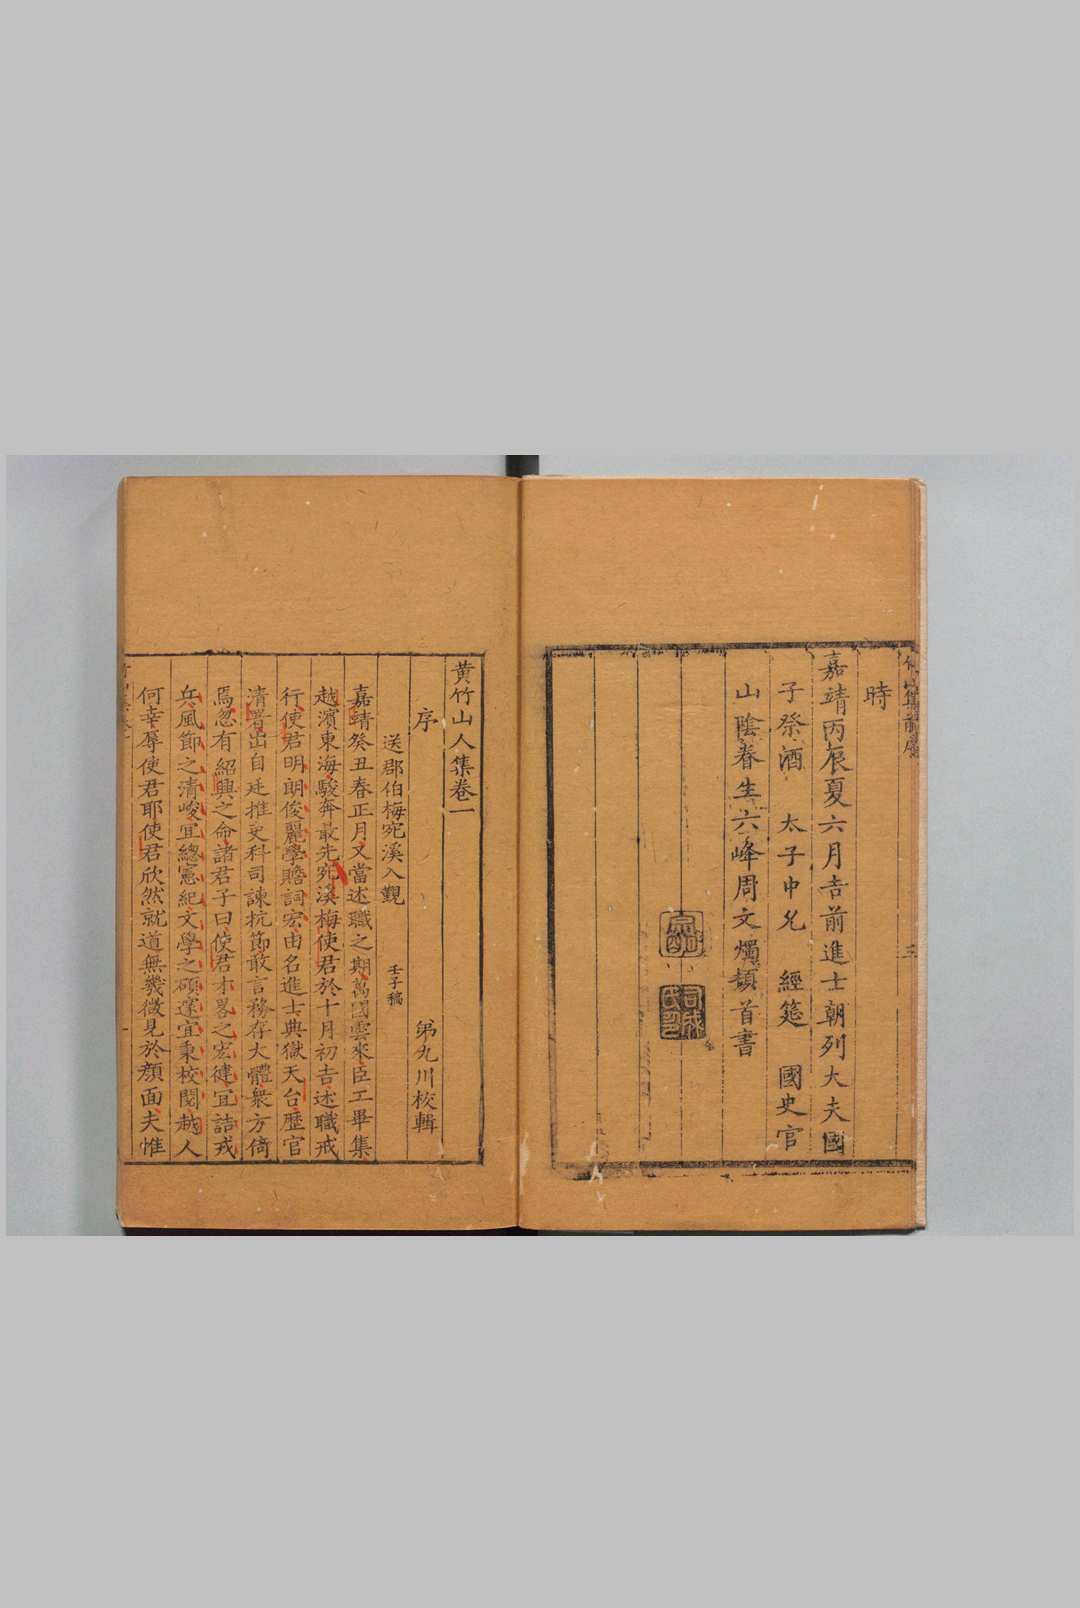 時
嘉靖丙辰夏六月吉前進士朝列大夫國
子祭酒　太子中允　經筵　國史官
山陰春生六峰周文燭頓首書
三
黃竹山人集卷一
序　弟九川校輯
送郡伯梅宛溪入覲　壬子稿
嘉靖癸丑春正月又當述職之期萬國雲來臣工畢集
越濱東海駿奔最先宛溪梅使君於十月初吉述職戒
行使君明朗俊麗學贍詞宏由名進士典獄天台歷官
清署出自廷推吏科司諫抗節敢言務存大體衆方倚
焉忽有紹興之命諸君子曰使君才畧之宏偉宜詰戎
兵風節之清峻宜總憲紀文學之碩邃宜秉校閱越人
何幸辱使君耶使君欣然就道無幾微見於顏面夫惟